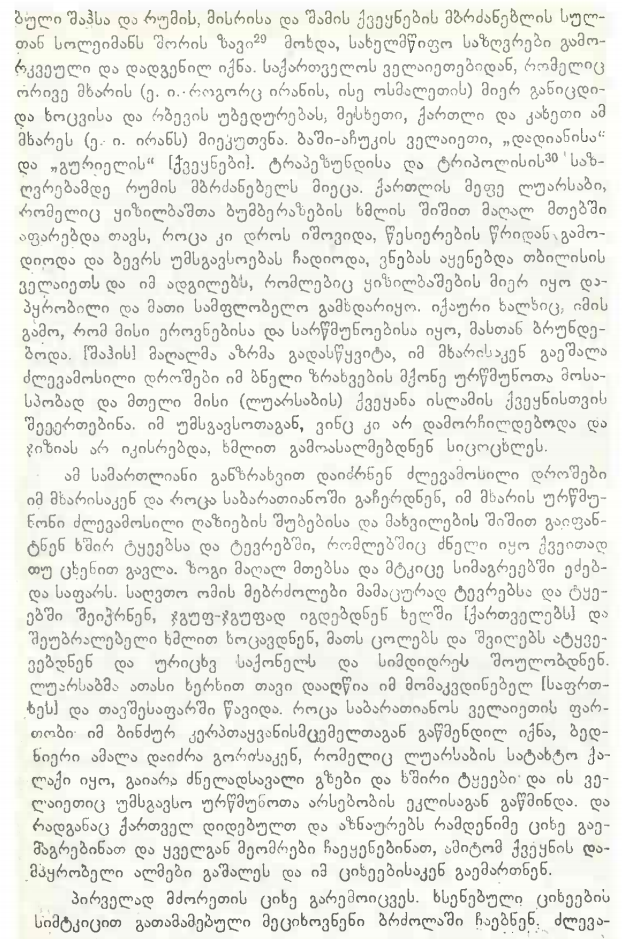 ბული შაჰსა და რუმის, მისრისა და შამის ქვეყნების მბრძანებლის სულ-
თან სოლეიმანს შორის ზავი²⁹ მოხდა, სახელმწიფო საზღვრები გამო-
რკვეული და დადგენილ იქნა. საქართველოს ველაიეთებიდან, რომელიც
ორივე მხარის (ე. ი. როგორც ირანის, ისე ოსმალეთის) მიერ განიცდი-
და ხოცვისა და რბევის უბედურებას, მესხეთი, ქართლი და კახეთი ამ
მხარეს (ე. ი. ირანს) მიეკუთვნა. ბაში-აჩუკის ველაიეთი, „დადიანისა“
და „გურიელის“ [ქვეყნები]. ტრაპეზუნდისა და ტრიპოლისის³⁰ საზ-
ღვრებამდე რუმის მბრძანებელს მიეცა. ქართლის მეფე ლუარსაბი,
რომელიც ყიზილბაშთა ბუმბერაზების ხმლის შიშით მაღალ მთებში
აფარებდა თავს, როცა კი დროს იშოვიდა, წესიერების წრიდან გამო-
დიოდა და ბევრს უმსგავსოებას ჩადიოდა, ვნებას აყენებდა თბილისის
ველაიეთს და იმ ადგილებს, რომლებიც ყიზილბაშების მიერ იყო და-
პყრობილი და მათი სამფლობელო გამხდარიყო. იქაური ხალხიც, იმის
გამო, რომ მისი ეროვნებისა და სარწმუნოებისა იყო, მასთან ბრუნდე-
ბოდა. [შაჰის] მაღალმა აზრმა გადასწყვიტა, იმ მხარისაკენ გაეშალა
ძლევამოსილი დროშები იმ ბნელი ზრახვების მქონე ურწმუნოთა მოსა-
სპობად და მთელი მისი (ლუარსაბის) ქვეყანა ისლამის ქვეყნისთვის
შეეერთებინა. იმ უმსგავსოთაგან, ვინც კი არ დამორჩილდებოდა და
ჯიზიას არ იკისრებდა, ხმლით გამოასალმებდნენ სიცოცხლეს.
ამ სამართლიანი განზრახვით დაიძრნენ ძლევამოსილი დროშები
იმ მხარისაკენ და როცა საბარათიანოში გაჩერდნენ, იმ მხარის ურწმუ-
ნონი ძლევამოსილი ღაზიების შუბებისა და მახვილების შიშით გაიფან-
ტნენ ხშირ ტყეებსა და ტევრებში, რომლებშიც ძნელი იყო ქვეითად
თუ ცხენით გავლა. ზოგი მაღალ მთებსა და მტკიცე სიმაგრეებში ეძებ-
და საფარს. საღვთო ომის მებრძოლები მამაცურად ტევრებსა და ტყე-
ებში შეიჭრნენ, ჯგუფ-ჯგუფად იგდებდნენ ხელში [ქართველებს] და
შეუბრალებელი ხმლით ხოცავდნენ, მათს ცოლებს და შვილებს ატყვე-
ვებდნენ და ურიცხვ საქონელს და სიმდიდრეს შოულობდნენ.
ლუარსაბმა ათასი ხერხით თავი დააღწია იმ მომაკვდინებელ [საფრთ-
ხეს] და თავშესაფარში წავიდა. როცა საბარათიანოს ველაიეთის ფარ-
თობი იმ ბინძურ კერპთაყვანისმცემელთაგან გაწმენდილ იქნა, ბედ-
ნიერი ამალა დაიძრა გორისაკენ, რომელიც ლუარსაბის სატახტო ქა-
ლაქი იყო, გაიარა ძნელადსავალი გზები და ხშირი ტყეები და ის ვე-
ლაიეთიც უმსგავსო ურწმუნოთა არსებობის ეკლისაგან გაწმინდა. და
რადგანაც ქართველ დიდებულთ და აზნაურებს რამდენიმე ციხე გაე-
მაგრებინათ და ყველგან მეომრები ჩაეყენებინათ, ამიტომ ქვეყნის და-
მპყრობელი ალმები გაშალეს და იმ ციხეებისაკენ გაემართნენ.
პირველად მძორეთის ციხე გარემოიცვეს. ხსენებული ციხეების
სიმტკიცით გათამამებული მეციხოვნენი ბრძოლაში ჩაებნენ. ძლევა-